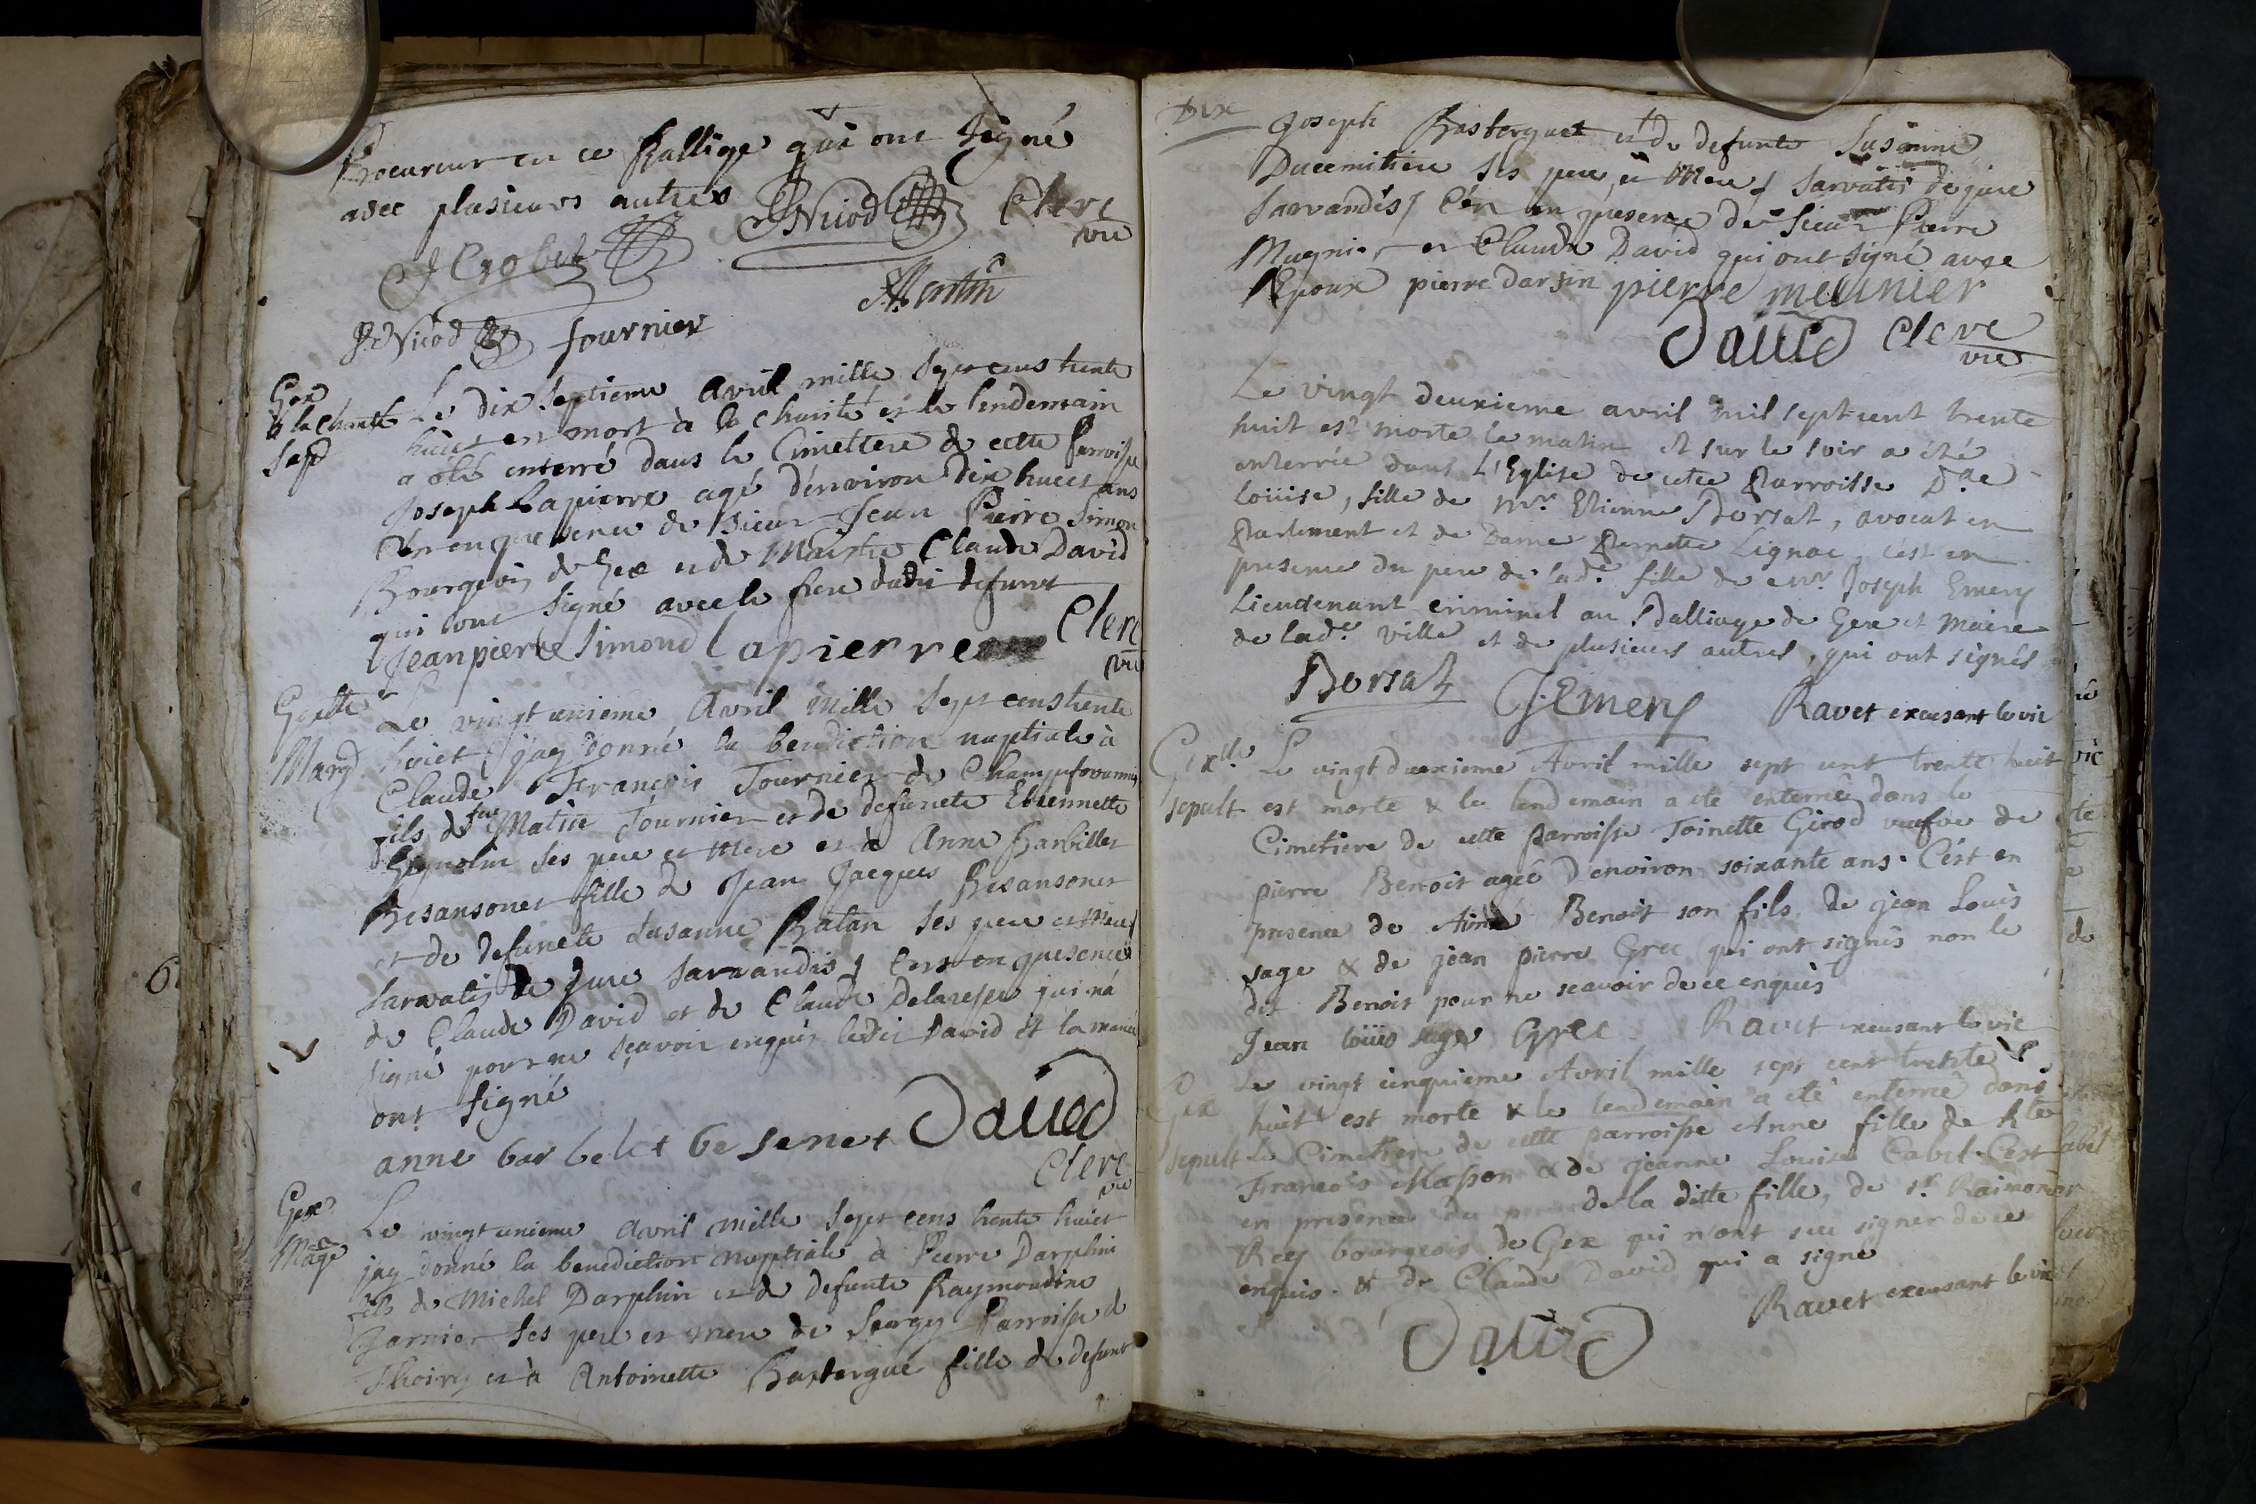 Procureur en ce Balliage qui ont signé
avec plusieurs autres
PNicod Clerc
vic
J Crobet
A. Martin
J. Nicod fournier
Gex
à la charité
Sepd
Le dix septieme avril mille sept cens trente
huict est mort à la charité et le lendemain
a olé enterré dans le Cimettiere de cette Parroisse
Joseph Lapierre agé d'environ dix huict ans
C'est en presence de sieur Jean Pierre Simon
Bourgeois de Gex et de Maistre Claude David
qui ont signé avec le frere dudit defunct
Jeanpierre Simond lapierre Clerc
vic
Marg
Le vingt unieme Avril mille sept cens trente
huict j'ay donné la benediction nuptiale à
Claude François Tournier de
fils de feu Matin Tournier et de defuncte Etiennette
ses pere et mere et à Anne Barbillet
Besansonet fille de Jean Jacques Besansonet
et de defuncte Susanne Batan ses pere et mere
sarvatis de Jure sarvandis C'est en presence
de Claude David et de Claude qui n'a
signé pour ne sçavoir enquis ledit David et la mariée
ont signé
anne bar belet be senet David
Clerc
vic
Gex
Mage
Le vingt unieme avril mille sept cens trente huict
jay donné la benediction nuptiale à Pierre Darphin
fils de Michel Darphin et de defunte Raymondine
Garnier ses pere et mere de Sergy Parroisse de
Thoiry et à Antoinette Bastergue fille de defunt
Dex
Joseph Basterguet et de defunte Susanne
Ducemitiere ses pere et mere sarvatis de jure
sarvandis C'est en presence de Sieur Pierre
Mugnier et Claude David qui ont signé avec
l'Epoux pierre darfin pierre meunier
David Clerc
vic
Le vingt deuxieme avril mil sept cent trente
huit est morte le matin et sur le soir a été
enterrée dans L'Eglise de cette Parroisse Dlle
Loüise, fille de Mr. Etienne Borsat, avocat en
Parlement et de Dame Pernette Lignac, c'est en
presence du pere de lade. fille de mr. Joseph Emery
Lieutenant criminel au Balliage de Gex et Maire
de lade. ville et de plusieurs autres, qui ont signés
Borsat J. Emery Ravet excusant le vic
Gex
sepult
Le vingt deuxieme Avril mille sept cent trente huit
est morte & le lendemain a ete enterrée dans le
Cimetiere de cette parroisse Toinette Girod veufve de
pierre Benoit agée d'environ soixante ans. C'est en
presence de Aimé Benoit son fils, de jean Louis
sage & de jean pierre Grec qui ont signés non le
dit Benoit pour ne scavoir de ce enquis
Jean loüis sage Grec Ravet excusant le vic
Gex
sepult
Le vingt cinquieme Avril mille sept cent trente
huit est morte & le lendemain a eté enterrée dans
Le Cimetiere de cette parroisse Anne fille de
François Masson & de jeanne Louise Cabel. C'est
en presence du pere de la ditte fille, de sr. Raimond
Rey bourgeois de Gex qui n'ont sçu signer de ce
enquis. & de Claude David qui a signé
Ravet excusant le vic
David